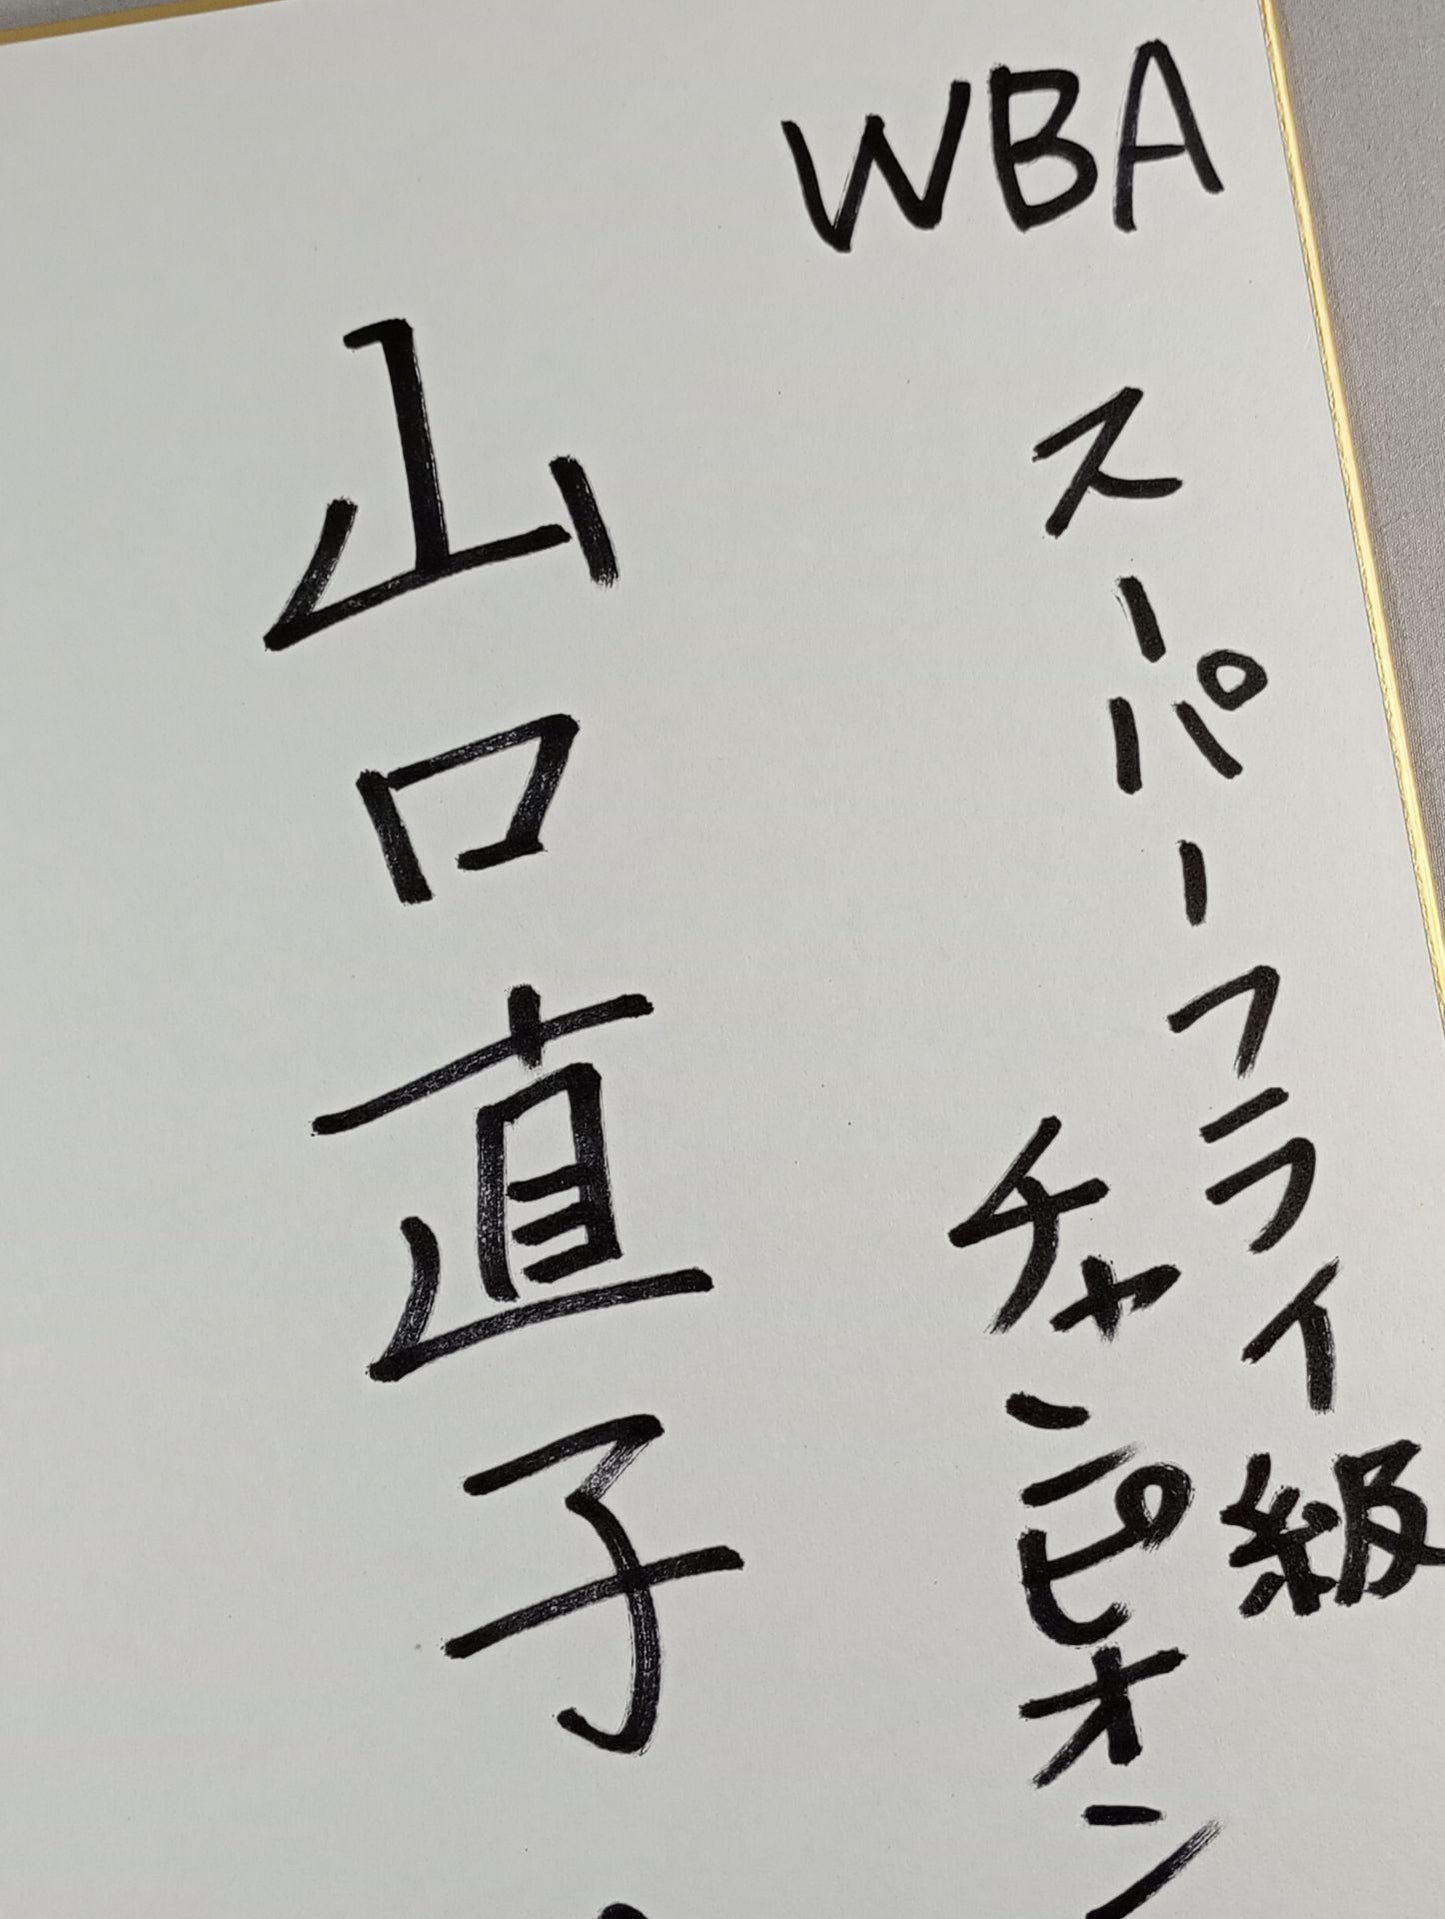 WBA
スーパーフライ級
チャンピオン
山口直子